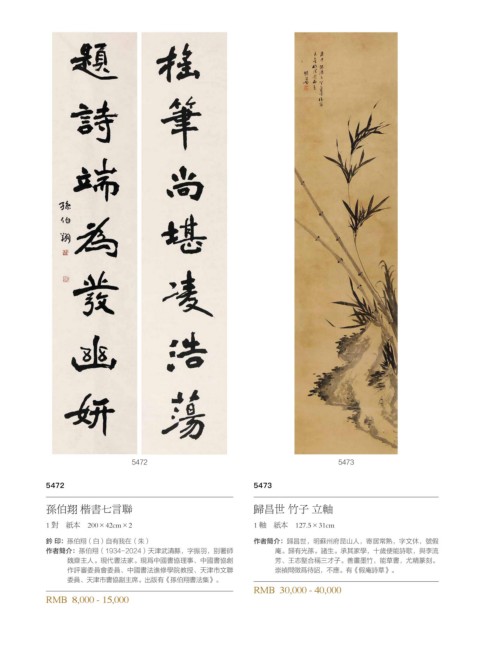 搖筆尚堪凌浩蕩
題詩端為發幽妍
孫伯翔
5472
5473
5472
孫伯翔 楷書七言聯
1對 紙本 200×42cm×2
鈐印：孫伯翔（白）自有我在（朱）
作者簡介：孫伯翔（1934-2024）天津武清縣，字振羽，別署師
魏齋主人。現代書法家。現為中國書協理事、中國書協創
作評審委員會委員、中國書法進修學院教授、天津市文聯
委員、天津市書協副主席。出版有《孫伯翔書法集》。
RMB 8,000 - 15,000
5473
歸昌世 竹子 立軸
1軸 紙本 127.5×31cm
作者簡介：歸昌世，明蘇州府昆山人，寄居常熟，字文休，號假
庵。歸有光孫。諸生。承其家學，十歲便能詩歌，與李流
芳、王志堅合稱三才子。善畫墨竹，能草書，尤精篆刻。
崇禎間徵為待詔，不應。有《假庵詩草》。
RMB 30,000 - 40,000